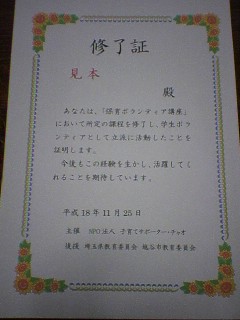 修了証
見本
殿
あなたは、「保育ボランティア講座」
において所定の課程を修了し、学生ボ
ランティアとして立派に活動したことを
証明します。
今後もこの経験を生かし、活躍してく
れることを期待しています。
平成18年11月25日
主催 NPO法人 子育てサポーター・チャオ
後援 埼玉県教育委員会 越谷市教育委員会